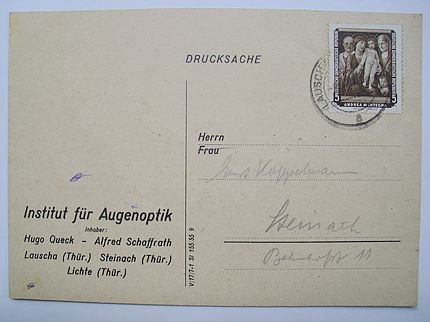 DRUCKSACHE
LAUSCH
a
DEUTSCHE DEMOKRATISCHE REPUBLIK
5
5
ANDREA MANTEGNA
Herrn
Frau
Koppelmann
Steinach
Bahnhofst 11
Institut für Augenoptik
Inhaber:
Hugo Queck – Alfred Schaffrath
Lauscha (Thür.) Steinach (Thür.)
Lichte (Thür.)
V/17/7-1 Sl 155 55 9